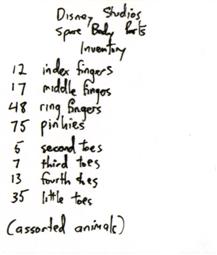 Disney Studios
Spare Body Parts
Inventory
12 index fingers
17 middle fingers
48 ring fingers
75 pinkies
6 second toes
7 third toes
13 fourth toes
35 little toes
(assorted animals)